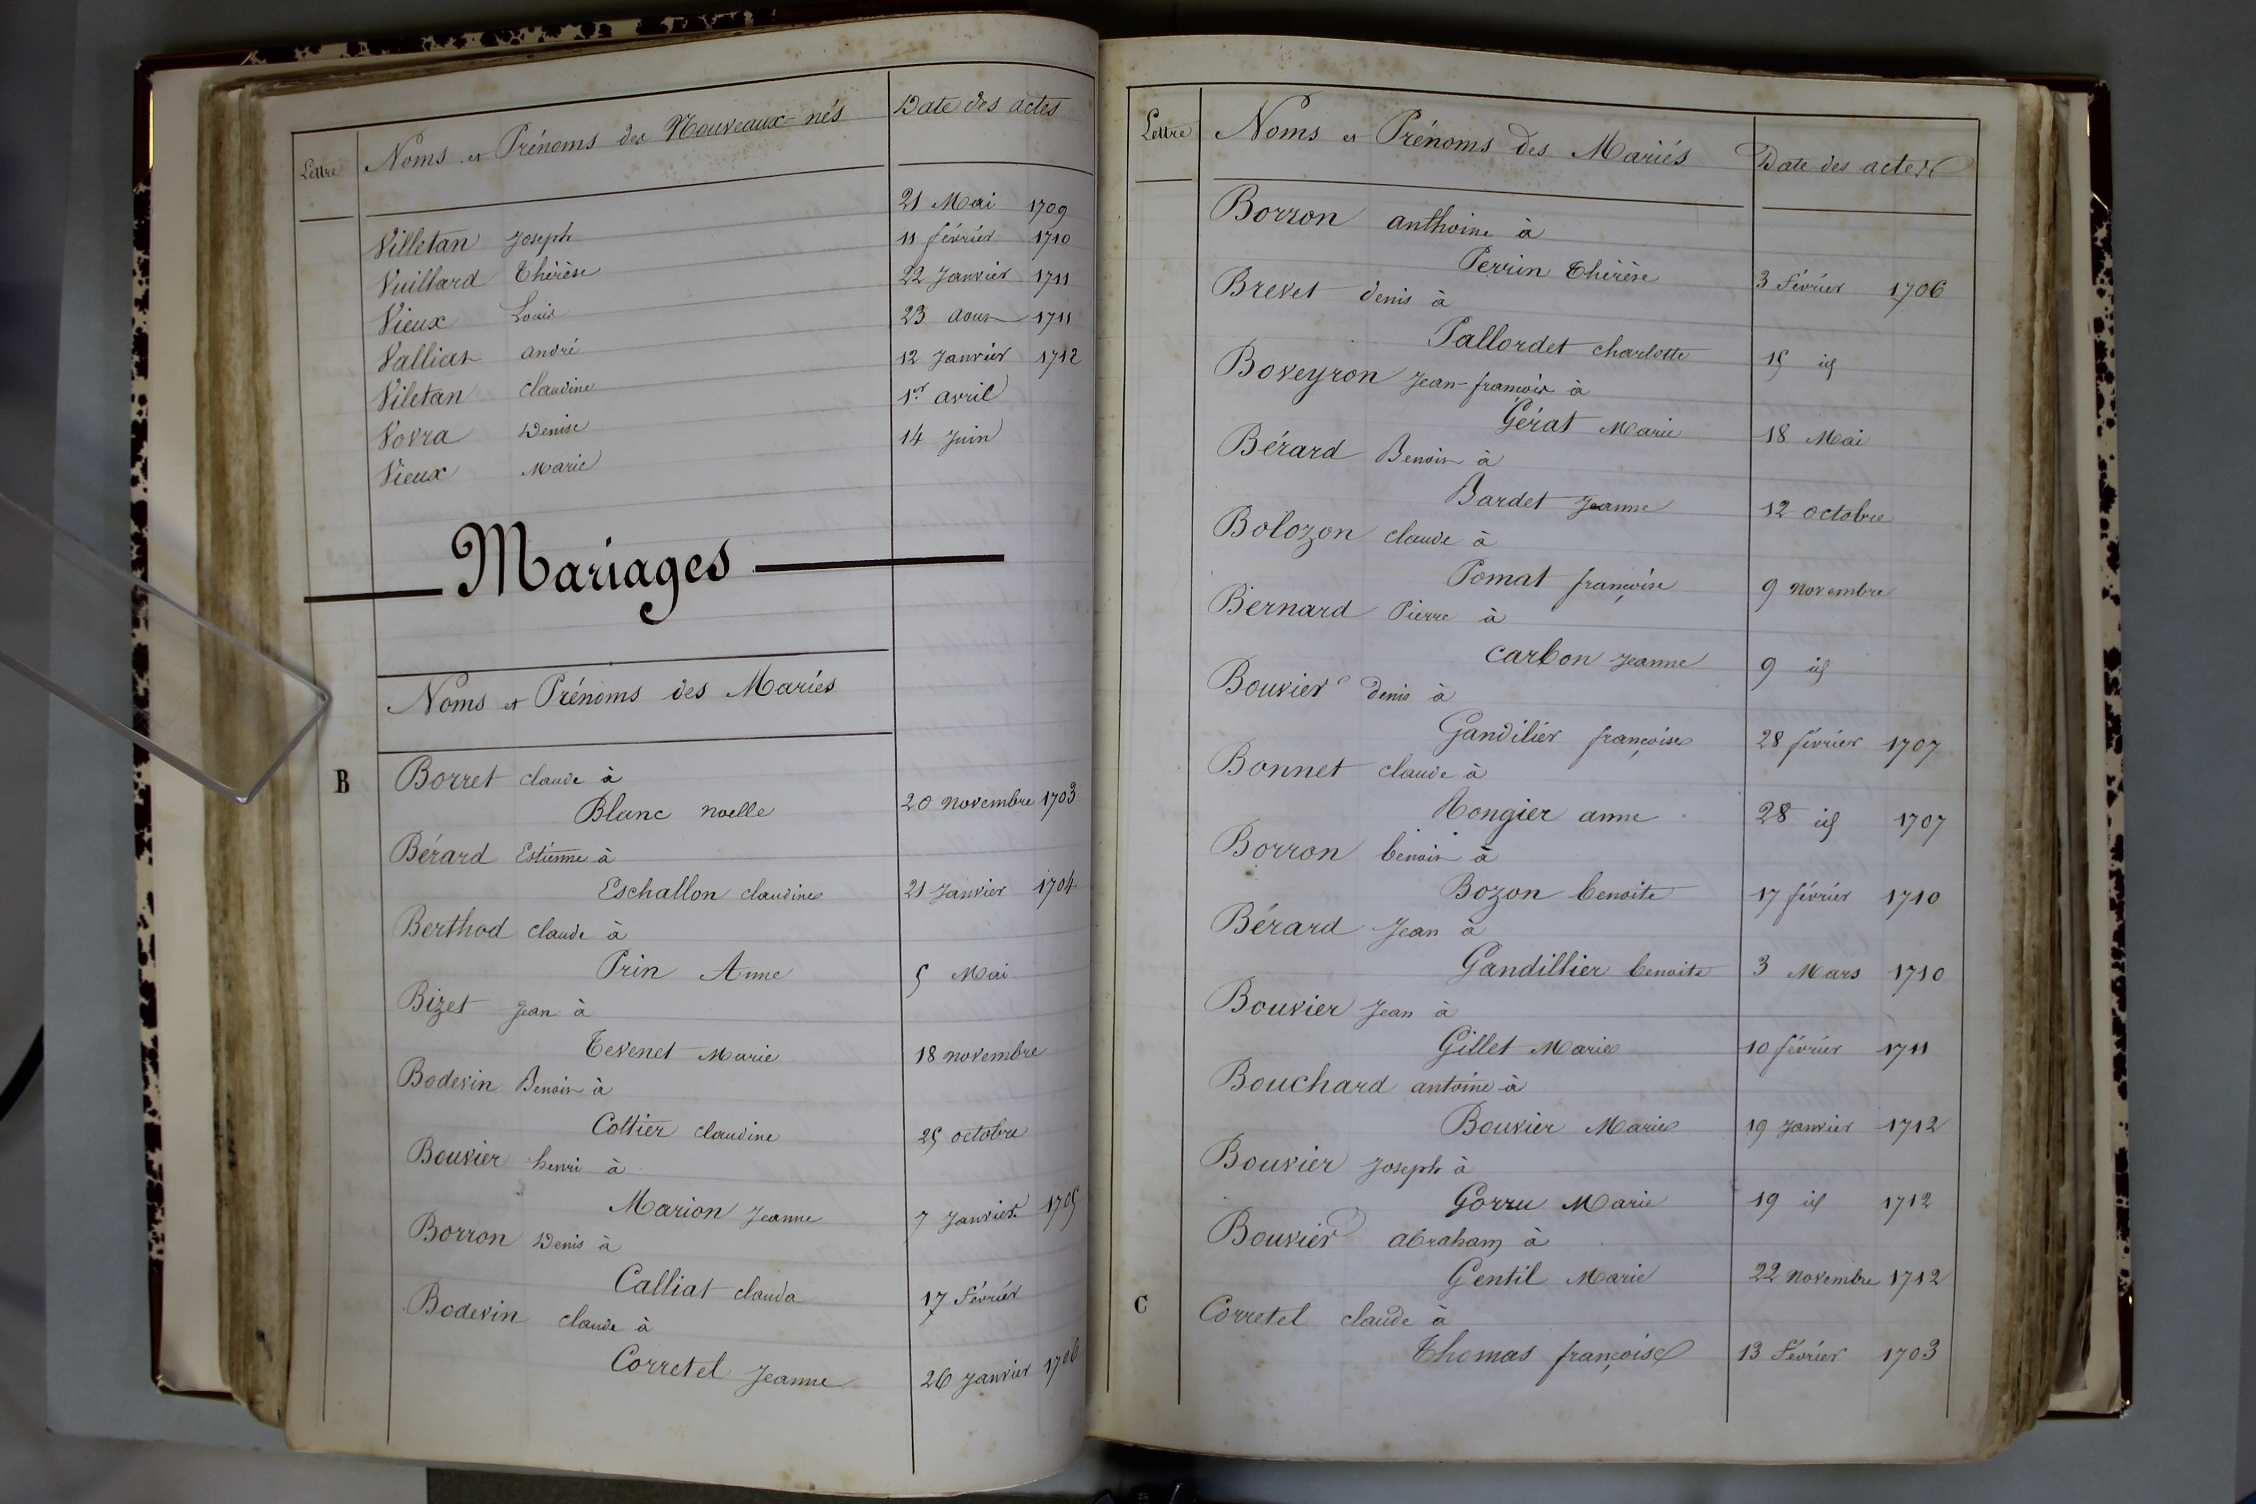 Lettre Noms et Prénoms des Nouveaux-nés Date des actes
Villetan Joseph 21 Mai 1709
Vuillard Thérèse 11 février 1710
Vieux Louis 22 Janvier 1711
Vallian André 23 Aoust 1711
Viletan Claudine 12 Janvier 1712
Vovra Denise 1er avril
Vieux Marie 14 Juin
Mariages
Noms et Prénoms des Mariés
B Borret claude à
Blanc noelle 20 novembre 1703
Bérard Estienne à
Eschallon claudine 21 Janvier 1704
Berthod claude à
Prin Anne 5 Mai
Bizet Jean à
Tevenet Marie 18 novembre
Bodevin Benoit à
Cottier claudine 25 octobre
Bouvier henri à
Marion Jeanne 7 Janvier 1705
Borron Denis à
Calliat clauda 17 Février
Bodevin claude à
Corretel Jeanne 26 Janvier 1706
Lettre Noms et Prénoms des Mariés Date des actes
Borron anthoine à
Perrin Thérèse 3 Février 1706
Brevet denis à
Pallordet charlotte 15 id
Boveyron Jean-françois à
Gérat Marie 18 Mai
Bérard Benoit à
Bardet Jeanne 12 octobre
Bolozon claude à
Pomat françoise 9 novembre
Bernard Pierre à
Carbon Jeanne 9 id
Bouvier denis à
Gandilier françoise 28 février 1707
Bonnet claude à
Rongier anne 28 id 1707
Borron benoit à
Bozon benoite 17 février 1710
Bérard Jean à
Gandillier benoite 3 Mars 1710
Bouvier Jean à
Gillet Marie 10 février 1711
Bouchard antoine à
Bouvier Marie 19 Janvier 1712
Bouvier Joseph à
Gorru Marie 19 id 1712
Bouvier abraham à
Gentil Marie 22 novembre 1712
C Corretel claude à
Thomas françoise 13 Février 1703